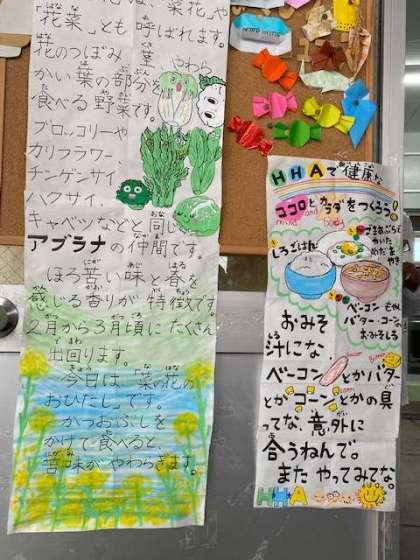 「花菜」とも呼ばれます。
花のつぼみ、茎、やわら
かい葉の部分を
食べる野菜です。
ブロッコリーや
カリフラワー、
チンゲンサイ、
ハクサイ、
キャベツなどと同じ
アブラナの仲間です。
ほろ苦い味と春を
感じる香りが特徴です。
2月から3月頃にたくさん
出回ります。
今日は「菜の花の
おひたし」です。
かつおぶしを
かけて食べると
苦味がやわらぎます。
HHAで健康な
ココロとカラダをつくろう!
mind and body
しろごはん
ベーコンもやし
バターコーン
おみそしる
おみそ
汁にな、
ベーコンとかバター
とかコーンとかの具
ってな、意外に
合うねんで。
またやってみてな。
HHA